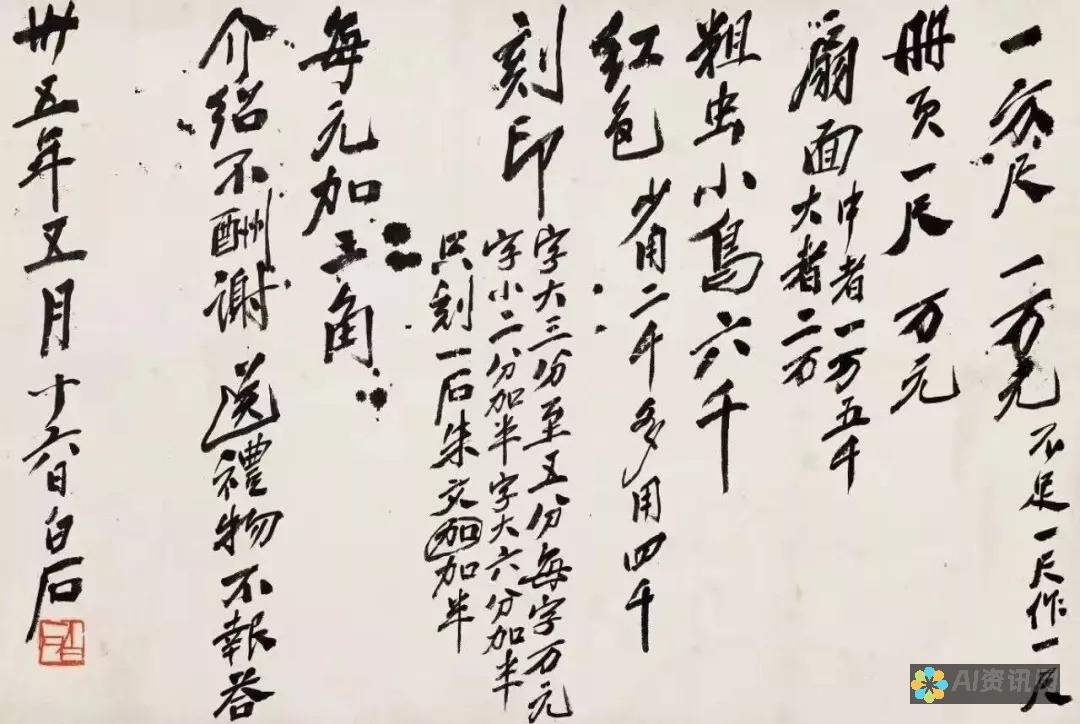 一方尺一万元不足一尺作一尺
册页一尺万元
扇面中者一万五千
大者二万
粗虫小鳥六千
红色少用二千多用四千
刻印字大三分至五分每字万元
字小二分加半字大六分加半
只刻一石朱文加加半
每元加三角
介绍不酬谢送禮物不報答
卅五年五月十六日白石
AI资讯网